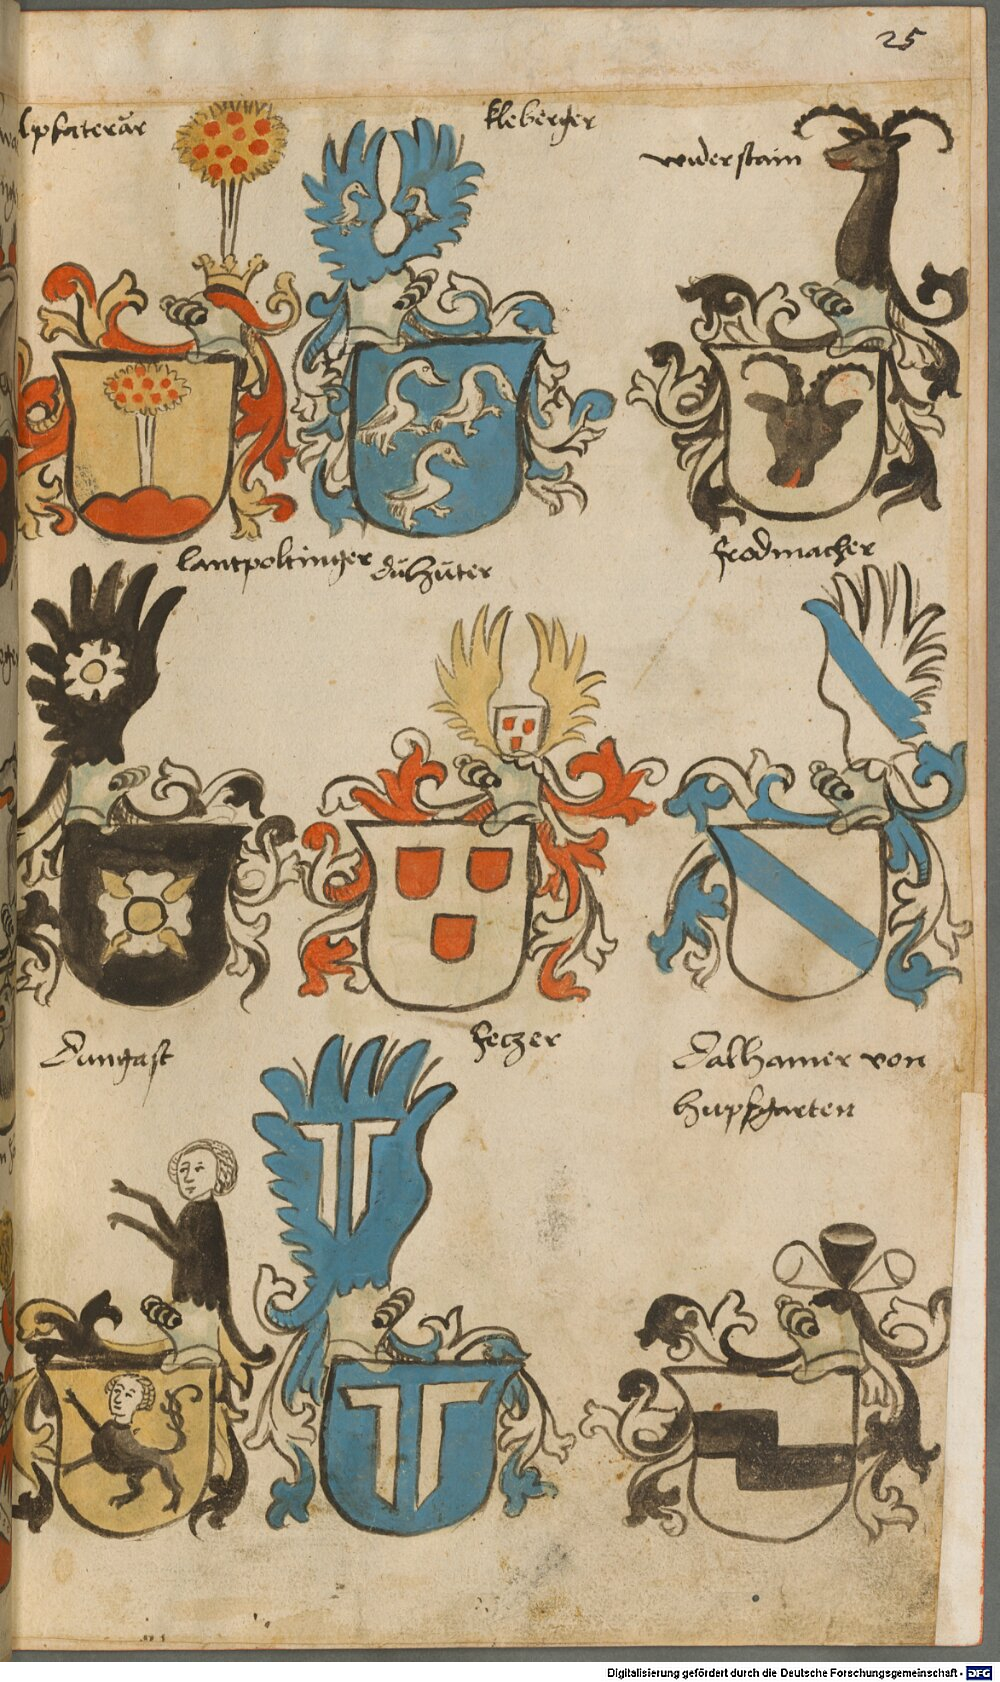 25
kleberger
widerstain
lantpoltinger
frodmacher
Dungast
feczer
Dalhamer von
hupfgarten
Digitalisierung gefördert durch die Deutsche Forschungsgemeinschaft - DFG